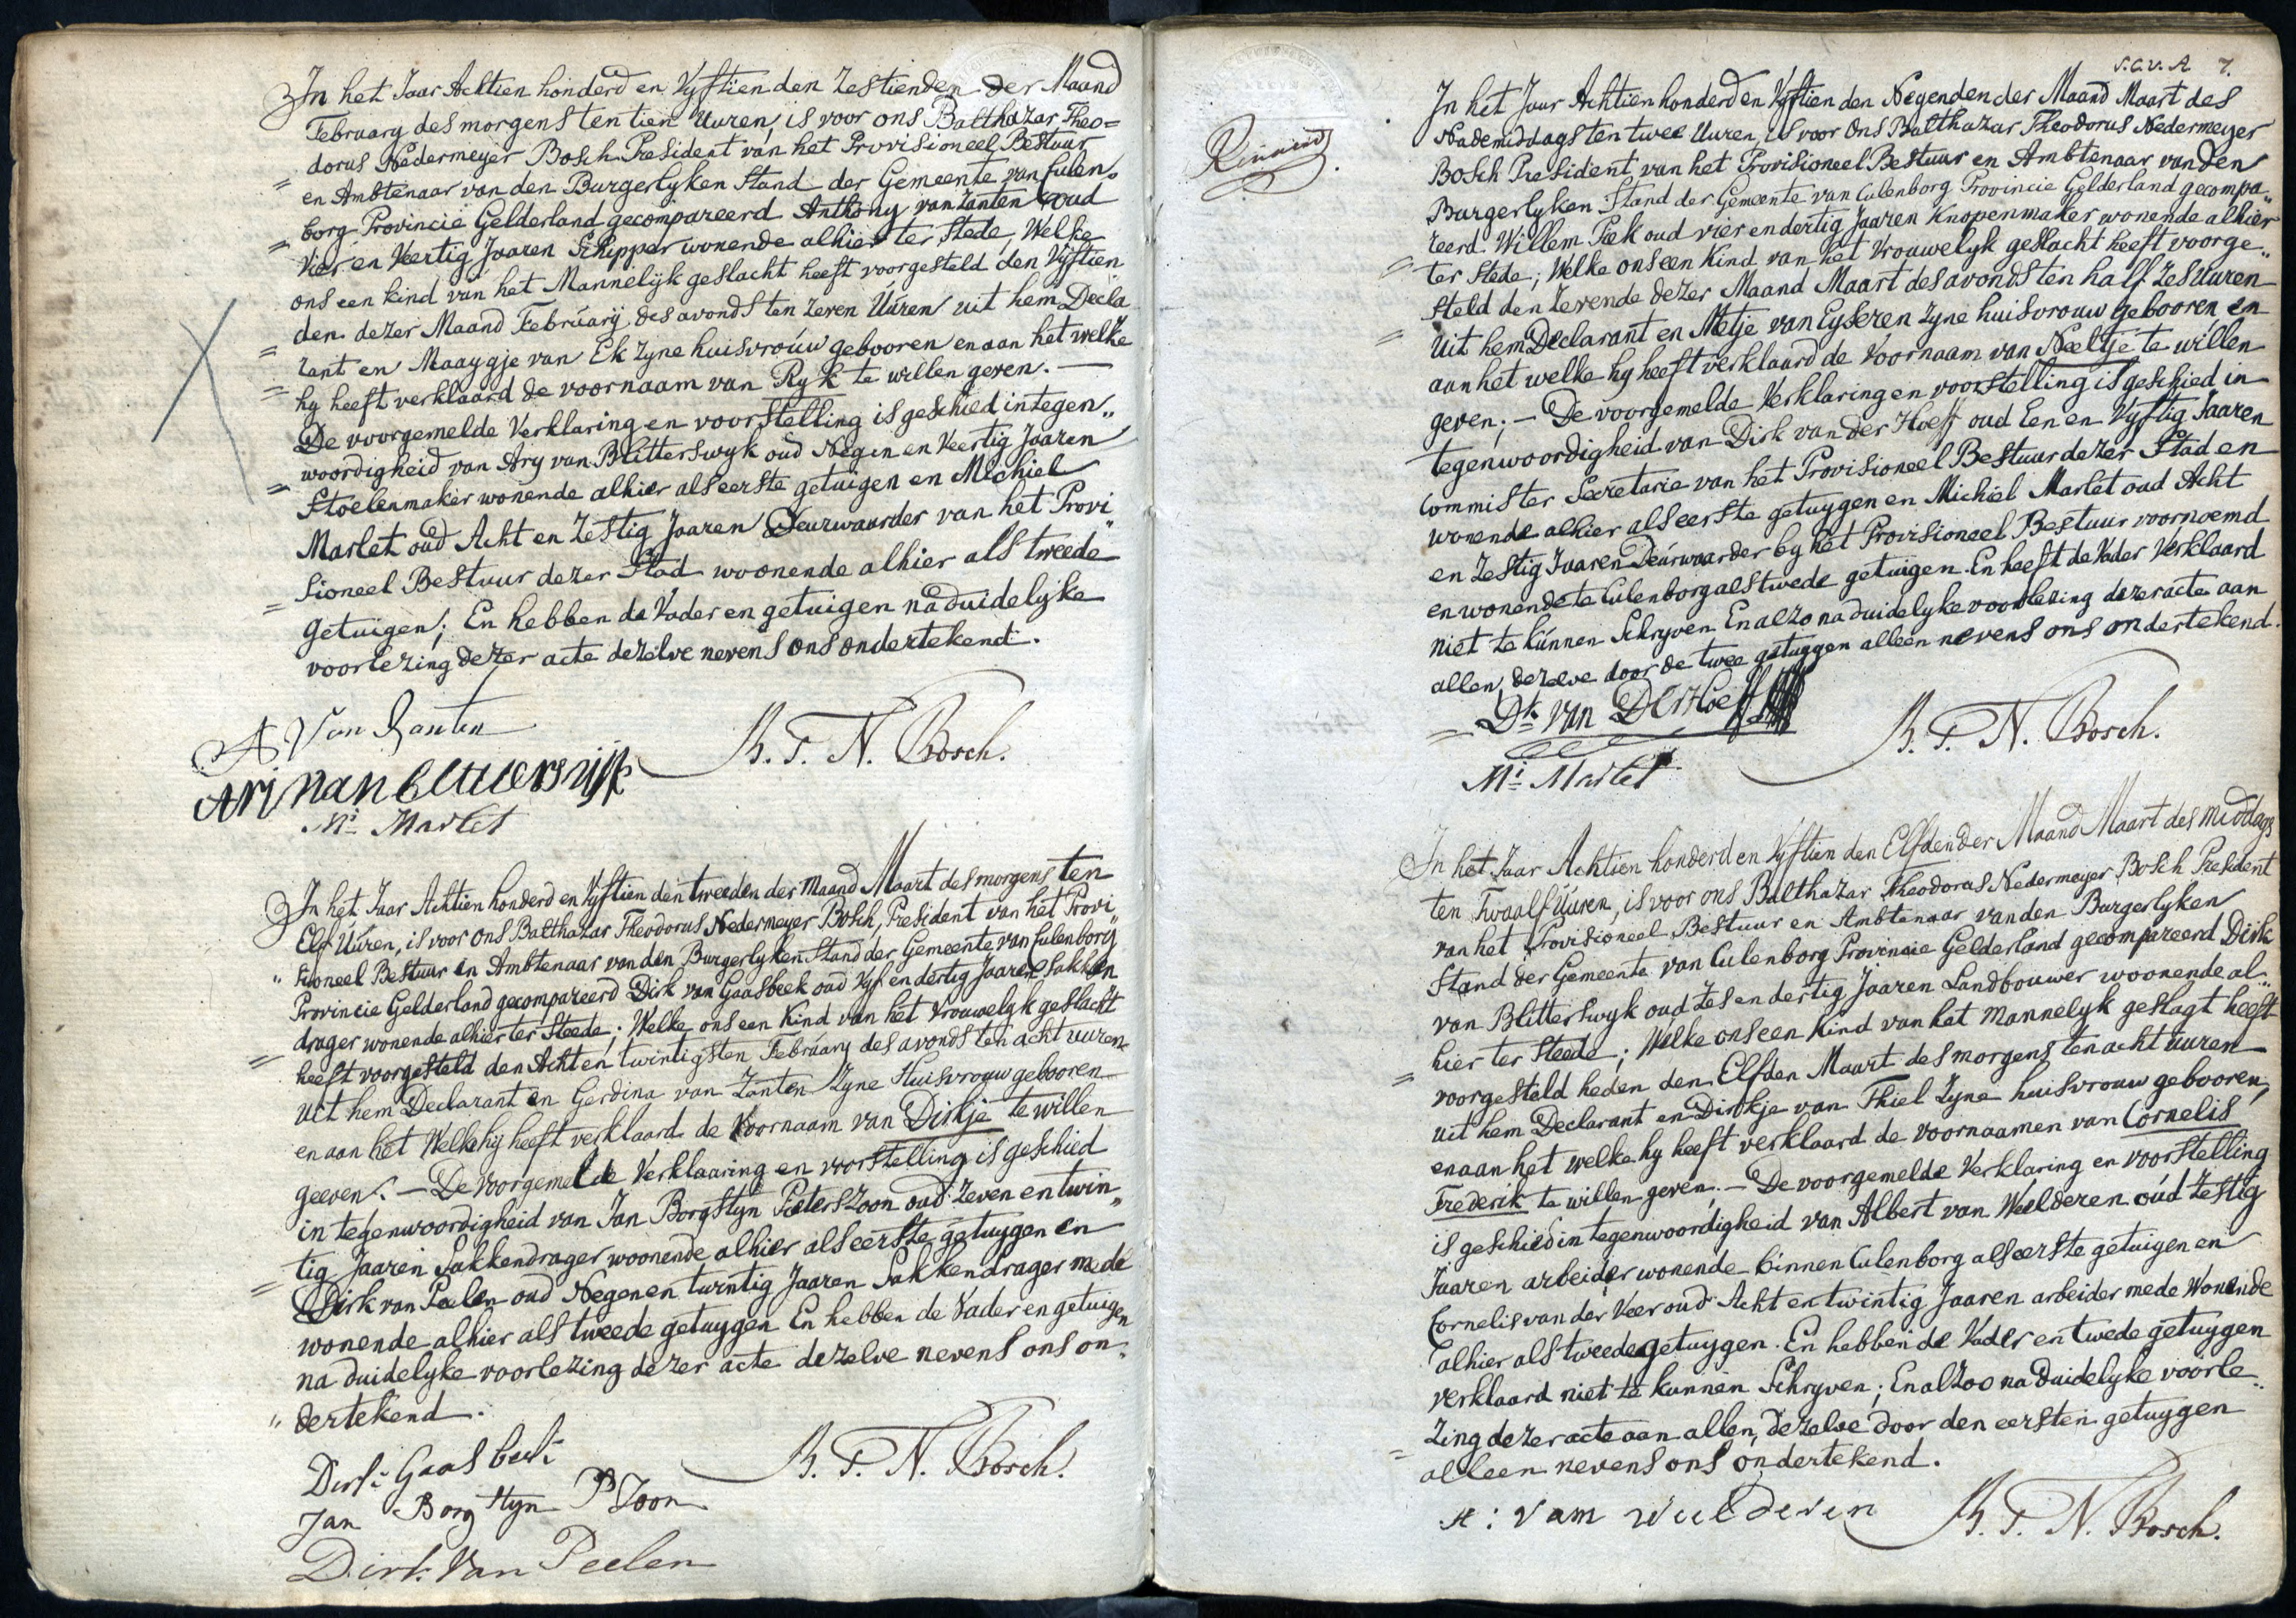 In het Jaar Achtien honderd en Vyftien den Zestienden der Maand
February des morgens ten tien Uuren, is voor ons Balthazar Theo=
dorus Nedermeyer Bosch President van het Provisioneel Bestuur
= en Ambtenaar van den Burgerlyken Stand der Gemeente van Culen„
borg Provincie Gelderland gecompareerd Anthony van Zanten oud
= Vier en Veertig Jaaren Schipper wonende alhier ter Stede, Welke
ons een kind van het Mannelyk geslacht heeft voorgesteld den Vyftien
den dezer Maand February des avonds ten Zeven Uuren uit hem Decla
= rant en Maaygje van Ek zyne huisvrouw gebooren en aan het welke
= hy heeft verklaard de voornaam van Ryk te willen geven. —
De voorgemelde Verklaring en voorstelling is geschied in tegen„
woordigheid van Ary van Blitterswyk oud Negen en Veertig Jaaren
= Stoelenmaker wonende alhier als eerste getuigen en Michiel
Marlet oud Acht en Zestig Jaaren Deurwaarder van het Provi
sioneel Bestuur dezer Stad woonende alhier als tweede
= Getuigen; En hebben de Vader en getuigen na duidelyke
voorlezing dezer acte dezelve nevens ons ondertekend.
A Van Zanten
B. T. N. Bosch.
Ari van blitterswijk
Ml Marlet
In het Jaar Achtien honderd en Vyftien den tweeden der Maand Maart des morgens ten
Elf Uuren, is voor ons Balthazar Theodorus Nedermeyer Bosch, President van het Provi„
„ sioneel Bestuur en Ambtenaar van den Burgerlyken Stand der Gemeente van Culenborg
Provincie Gelderland gecompareerd Dirk van Gaasbeek oud Vyf en dertig Jaaren Sakken
drager wonende alhier ter Steede; Welke ons een Kind van het Vrouwelyk geslacht
= heeft voorgesteld den Acht en twintigsten February des avonds ten acht uuren
uit hem Declarant en Gerdina van Zanten Zyne Huisvrouw gebooren
en aan het Welke hy heeft verklaard de Voornaam van Dirkje te willen
geeven. — De Voorgemelde Verklaaring en voorstelling is geschied
in tegenwoordigheid van Jan Borgstyn Pieterszoon oud Zeven en twin„
tig Jaaren Sakkendrager woonende alhier als eerste getuygen en
= Dirk van Peelen oud Negen en twintig Jaaren Sakkendrager mede
wonende alhier als tweede getuygen En hebben de Vader en getuigen
na duidelyke voorlezing dezer acte dezelve nevens ons on„
„ dertekend.
Dirk Gaasbeek
B. T. N. Bosch.
Jan Borgstyn P Zoon
Dirk Van Peelen
7.
In het Jaar Achtien honderd en Vyftien den Negenden der Maand Maart des
Nademiddags ten twee Uuren, is voor Ons Balthazar Theodorus Nedermeyer
Bosch President van het Provisioneel Bestuur en Ambtenaar van den
Burgerlyken Stand der Gemeente van Culenborg Provincie Gelderland gecompa„
reerd Willem Piek oud vier en dertig Jaaren Knopenmaker wonende alhier
= ter Stede; Welke ons een Kind van het Vrouwelyk geslacht heeft voorge„
steld den Zevende dezer Maand Maart des avonds ten half Zes uuren
= Uit hem Declarant en Metje van Eyseren Zyne huisvrouw Gebooren en
aan het welke hy heeft verklaard de Voornaam van Neeltje te willen
geven; — De voorgemelde Verklaring en voorstelling is geschied in
tegenwoordigheid van Dirk van der Hoeff oud Een en Vyftig Jaaren
Commister Secretarie van het Provisioneel Bestuur dezer Stad en
wonende alhier als eerste getuygen en Michiel Marlet oud Acht
en Zestig Jaaren Deurwaarder by het Provisioneel Bestuur voornoemd
en wonende te Culenborg als twede getuigen. En heeft de Vader Verklaard
niet te kunnen Schryven En alzo na duidelyke voorlezing dezer acte aan
allen, dezelve door de twee getuygen alleen nevens ons ondertekend.
Dk van Der Hoeff
B. T. N. Bosch.
Ml Marlet
In het Jaar Achtien honderd en Vyftien den Elfden der Maand Maart des middags
ten Twaalf Uuren, is voor ons Balthazar Theodorus Nedermeyer Bosch President
van het Provisioneel Bestuur en Ambtenaar van den Burgerlyken
Stand der Gemeente van Culenborg Provincie Gelderland gecompareerd Dirk
van Blitterswyk oud Zes en dertig Jaaren Landbouwer woonende al„
hier ter Steede; Welke ons een Kind van het Mannelyk geslagt heeft
= voorgesteld heden den Elfden Maart des morgens ten acht uuren
uit hem Declarant en Dirkje van Thiel Zyne huisvrouw gebooren,
en aan het welke hy heeft verklaard de voornaamen van Cornelis
Frederik te willen geven. — De voorgemelde Verklaring en voorstelling
is geschied in tegenwoordigheid van Albert van Weelderen oud Zestig
Jaaren arbeider wonende binnen Culenborg als eerste getuigen en
Cornelis van der Veer oud Acht en twintig Jaaren arbeider mede Wonende
alhier als tweede getuygen. En hebben de Vader en twede getuygen
verklaard niet te kunnen Schryven; En alzoo na duidelyke voorle„
= zing dezer acte aan allen, dezelve door den eersten getuygen
alleen nevens ons ondertekend.
A: van Weelderen
B. T. N. Bosch.